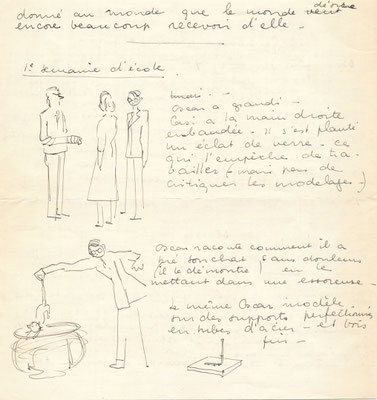 désire
donné au monde que le monde veut
encore beaucoup recevoir d'elle -
1e semaine d'école
Oscar a grandi -
Cari a la main droite
embandée - il s'est planté
un éclat de verre - ce
qui l'empêche de tra-
vailler (mais pas de
critiquer les modelages -)
Oscar raconte comment il a
tué son chat sans douleurs
(il le démontre) en le
mettant dans une essoreuse -
Le même Oscar modèle
sur des supports perfectionnés
en tubes d'acier - et bois
fin -